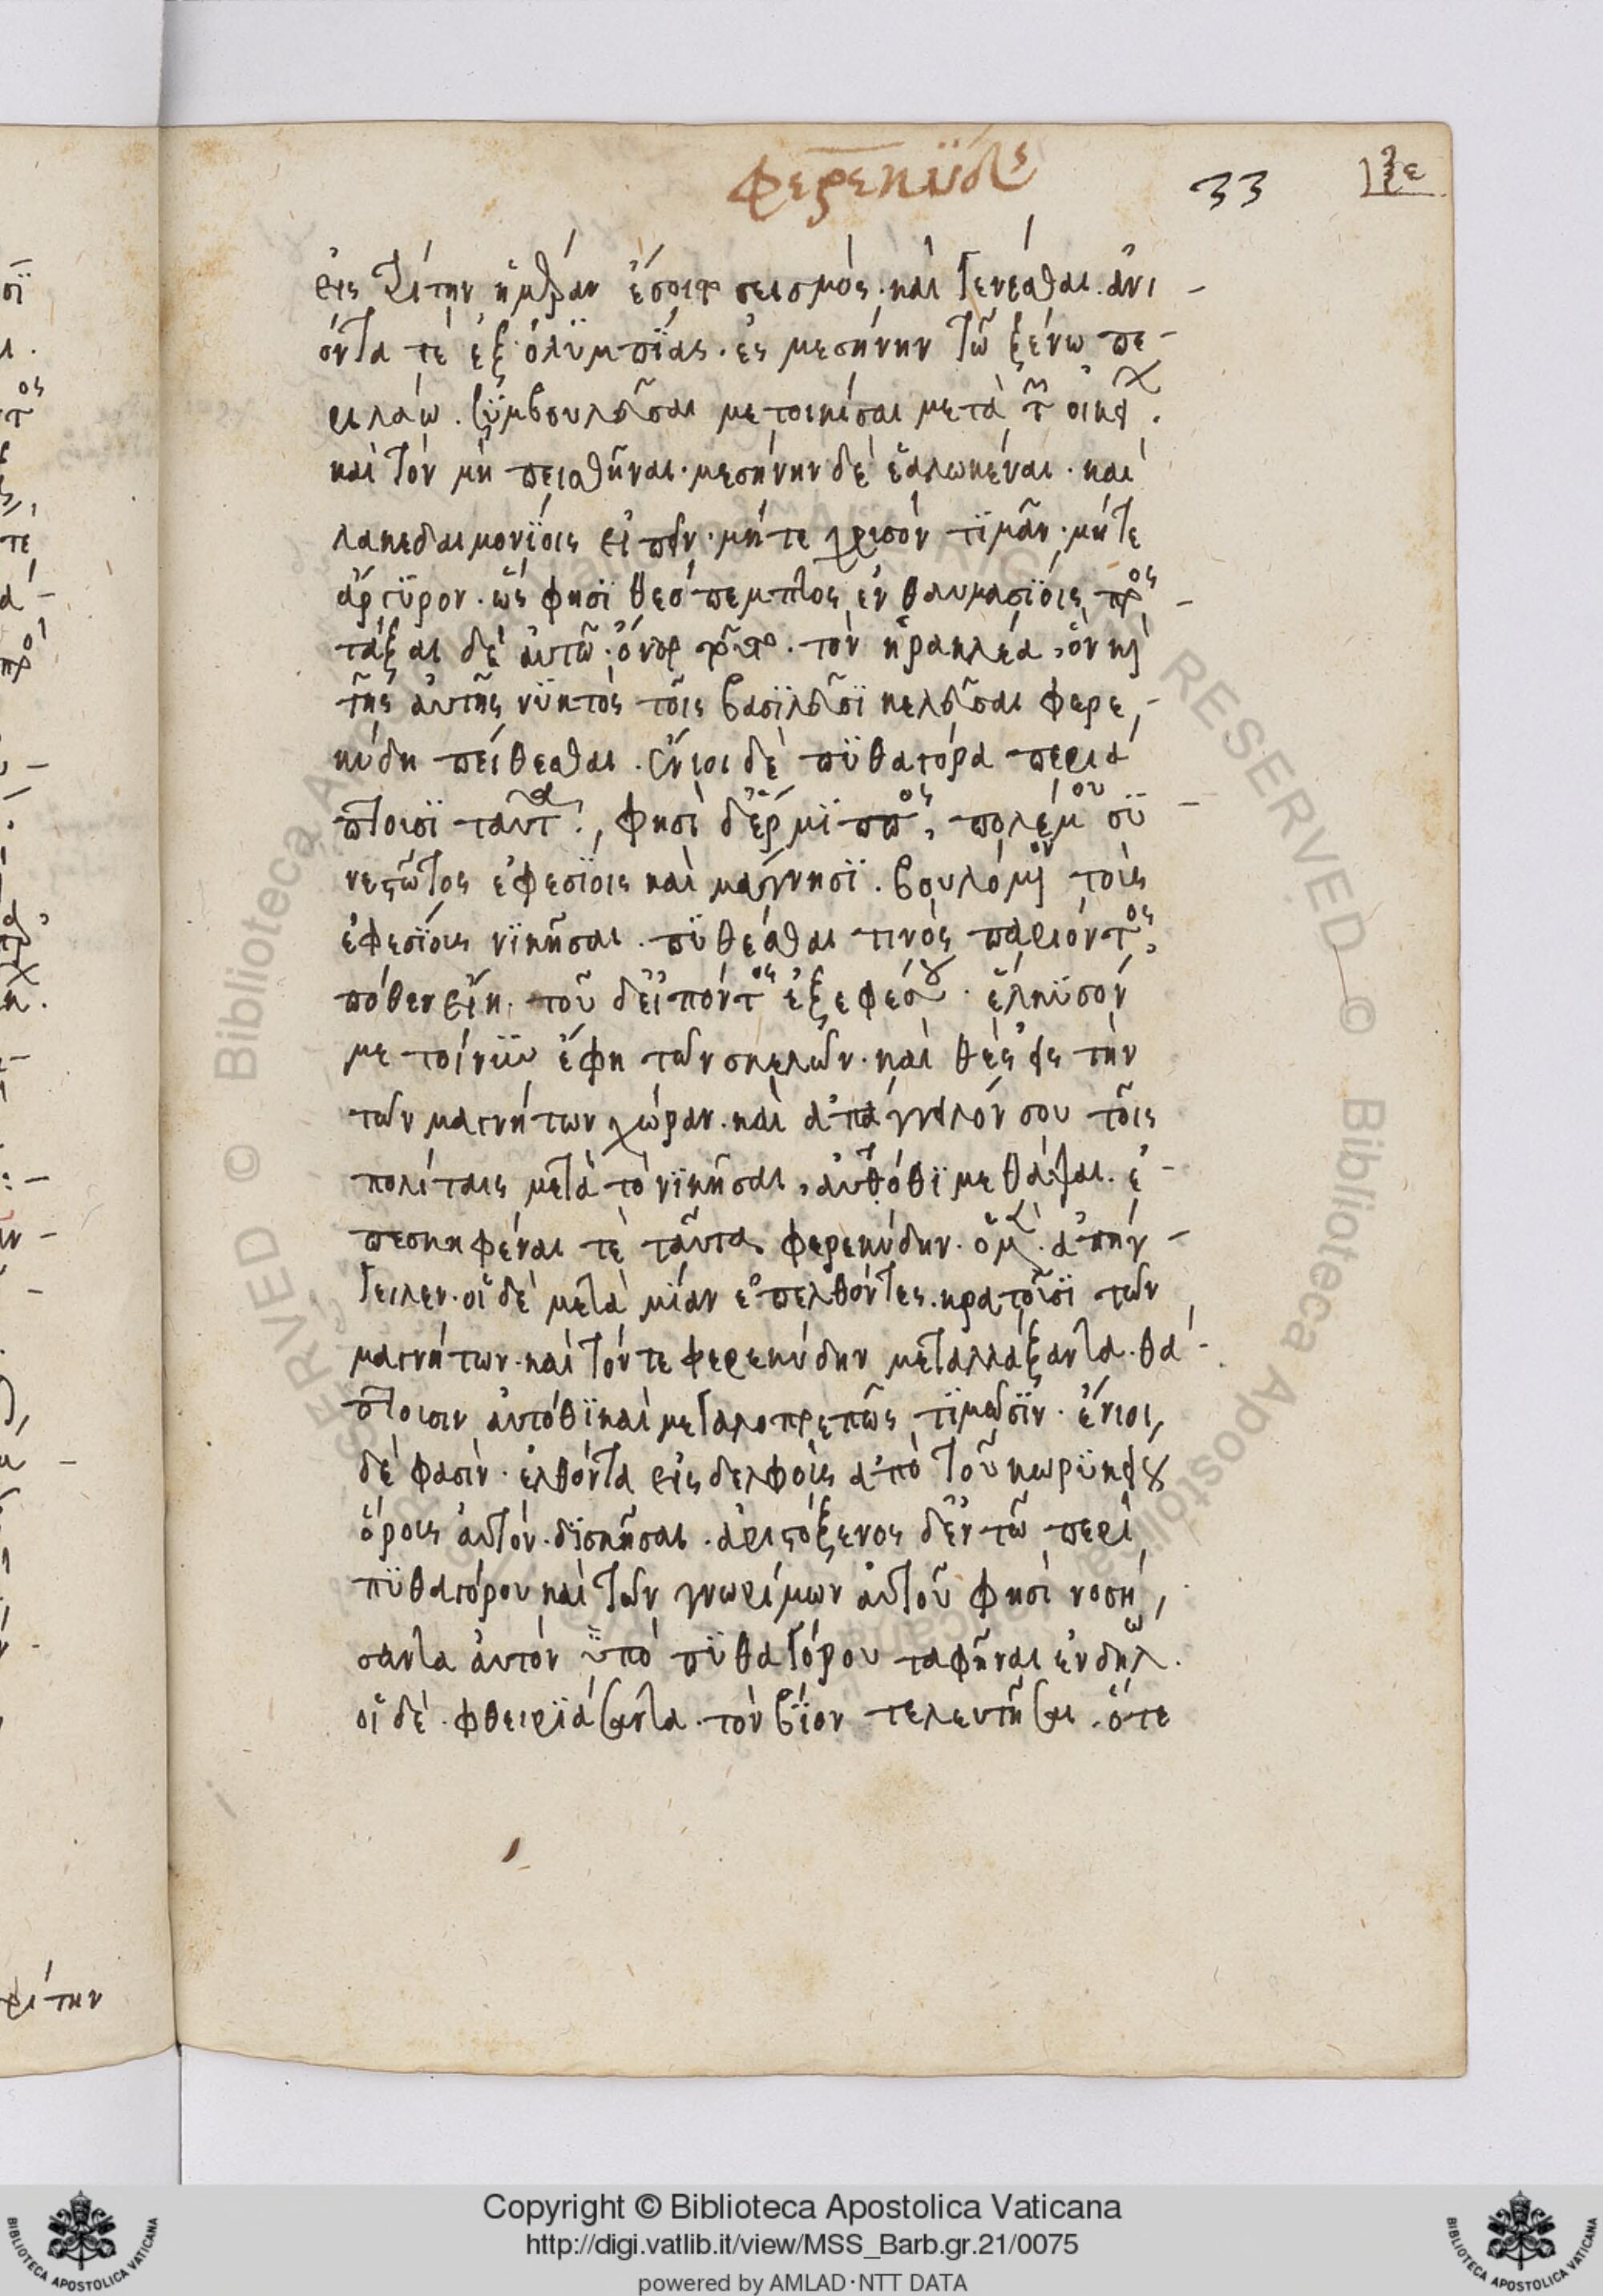 Φερεκύδης
33
εἰς τρίτην ἡμέραν ἔσοιτο σεισμός· καὶ γενέσθαι. ἀνι-
όντα τὲ ἐξ ὀλυμπίας. ἐς μεσήνην τῶ ξένω πε-
ριλάω. συμβουλεῦσαι μετοικίσαι μετὰ τῶν οἰκείων.
καὶ τὸν μὴ πεισθῆναι. μεσήνην δὲ ἑαλωκέναι. καὶ
λακεδαιμονίοις εἰπεῖν. μήτε χρυσὸν τιμᾶν. μήτε
ἄργυρον. ὥς φησι θεόπεμπτος ἐν θαυμασίοις προς-
τάξαι δὲ αὐτῶ. ὄναρ τοῦτο. τὸν ἡρακλέα, ὃν καὶ
τῆς αὐτῆς νυκτὸς τοῖς βασιλεῦσι κελεῦσαι φερε-
κύδη πείθεσθαι. ἔνιοι δὲ πυθαγόρα περιά
πτουσι ταῦτα, φησὶ δ' ἕρμιππος, πολέμου συ-
νεστῶτος ἐφεσίοις καὶ μάγνησι. βουλόμενον τοῖς
ἐφεσίοις νικῆσαι. πυθέσθαι τινὸς παριόντος,
πόθεν εἴη. τοῦ δ' εἰπόντος ἐξ ἐφέσου. ἕλκυσόν
με τοίνυν ἔφη τῶν σκελῶν. καὶ θὲς εἰς τὴν
τῶν μαγνήτων χώραν. καὶ ἀπάγγειλόν σου τοῖς
πολίταις μετὰ τὸ νικῆσαι, αὐτόθι με θάψαι. ἐ-
πεσκηφέναι τὲ ταῦτα φερεκύδην. ὁ μὲν. ἀπήγ-
γειλεν. οἱ δὲ μετὰ μίαν ἐπελθόντες. κρατοῦσι τῶν
μαγνήτων. καὶ τόν τε φερεκύδην μεταλλάξαντα. θά-
πτουσιν αὐτόθι καὶ μεγαλοπρεπῶς τιμῶσιν. ἔνιοι
δέ φασιν. ἐλθόντα εἰς δελφοὺς ἀπὸ τοῦ κωρυκείου
ὄρους αὐτὸν. δισκῆσαι. ἀριστόξενος δ' ἐν τῶ περὶ
πυθαγόρου καὶ τῶν γνωρίμων αὐτοῦ φησὶ νοσή
σαντα αὐτὸν ὑπὸ πυθαγόρου ταφῆναι ἐν δήλω.
οἱ δὲ. φθειριάσαντα. τὸν βίον τελευτῆσαι. ὅτε
ρίτην
RESERVED © Biblioteca Apostolica Vaticana
Copyright © Biblioteca Apostolica Vaticana
http://digi.vatlib.it/view/MSS_Barb.gr.21/0075
powered by AMLAD·NTT DATA
BIBLIOTECA APOSTOLICA VATICANA
BIBLIOTECA APOSTOLICA VATICANA